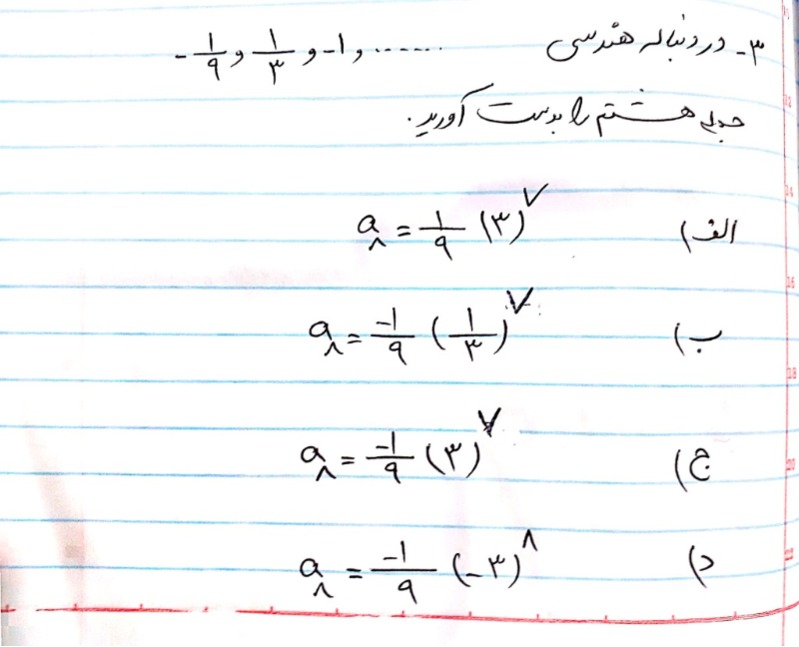 ۳- در دنباله هندسی -۱/۹ و ۱/۳ و -۱ و ......
جمله هشتم را بدست آورید.
الف) a۸ = ۱/۹ (۳)^۷
ب) a۸ = -۱/۹ (۱/۳)^۷
ج) a۸ = -۱/۹ (۳)^۷
د) a۸ = -۱/۹ (-۳)^۸